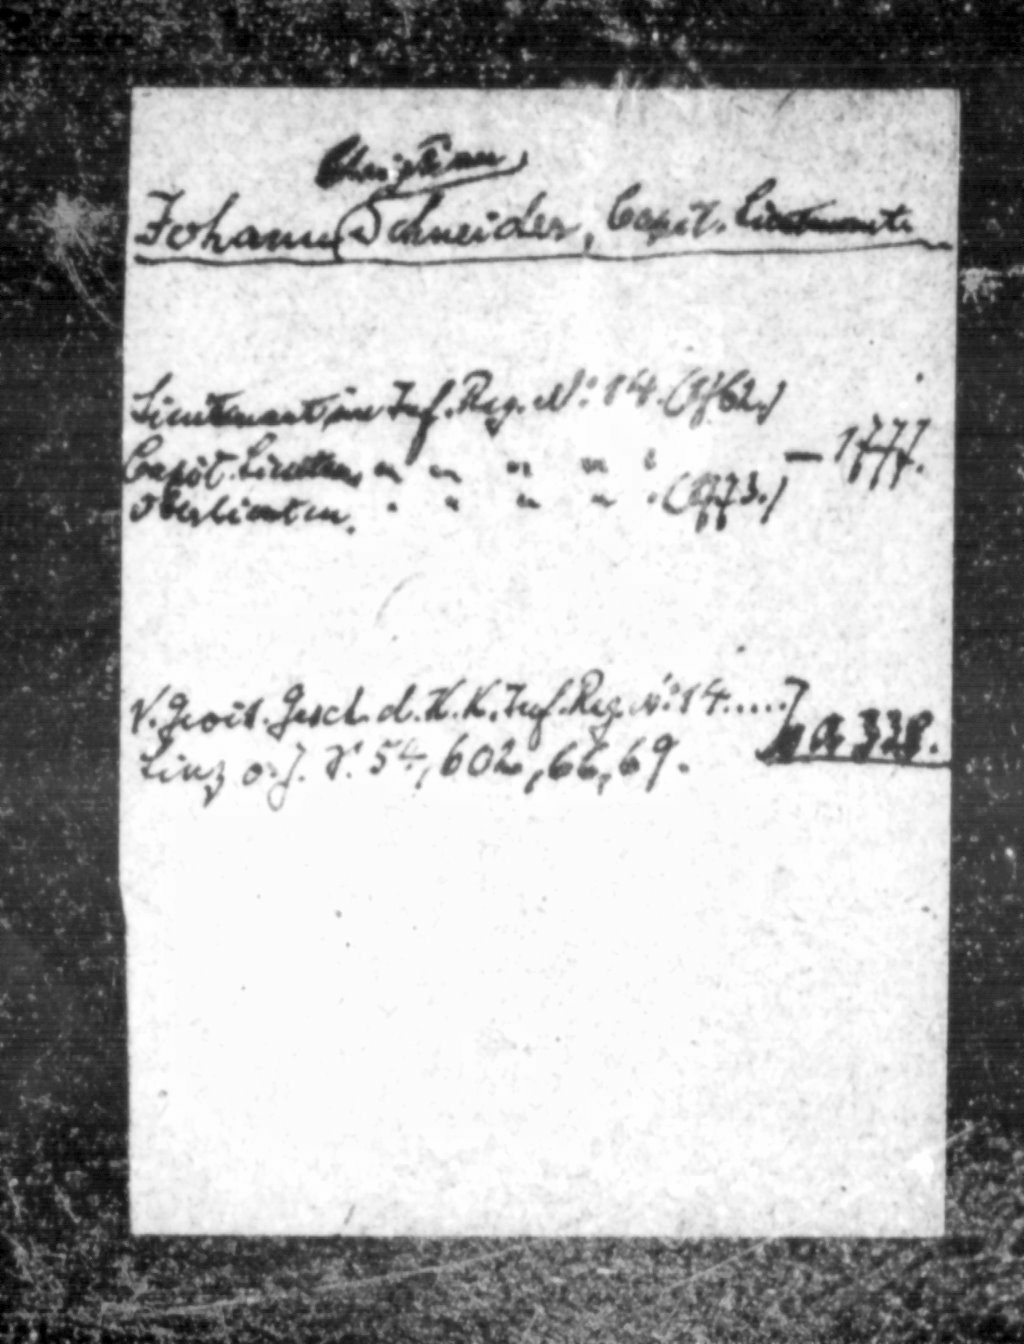 Christian
Johann Schneider, Capit. Lieutenant
Lieutenant im Inf. Reg. No. 14. (1762.)
Capit. Lieuten. " " " " " — 1777.
Oberlieuten. " " " " " (1773.)
V. Groit. Gesch. d. K. K. Inf. Reg. No. 14.....]
Linz o. J. S. 54, 602, 66, 69. a 328.